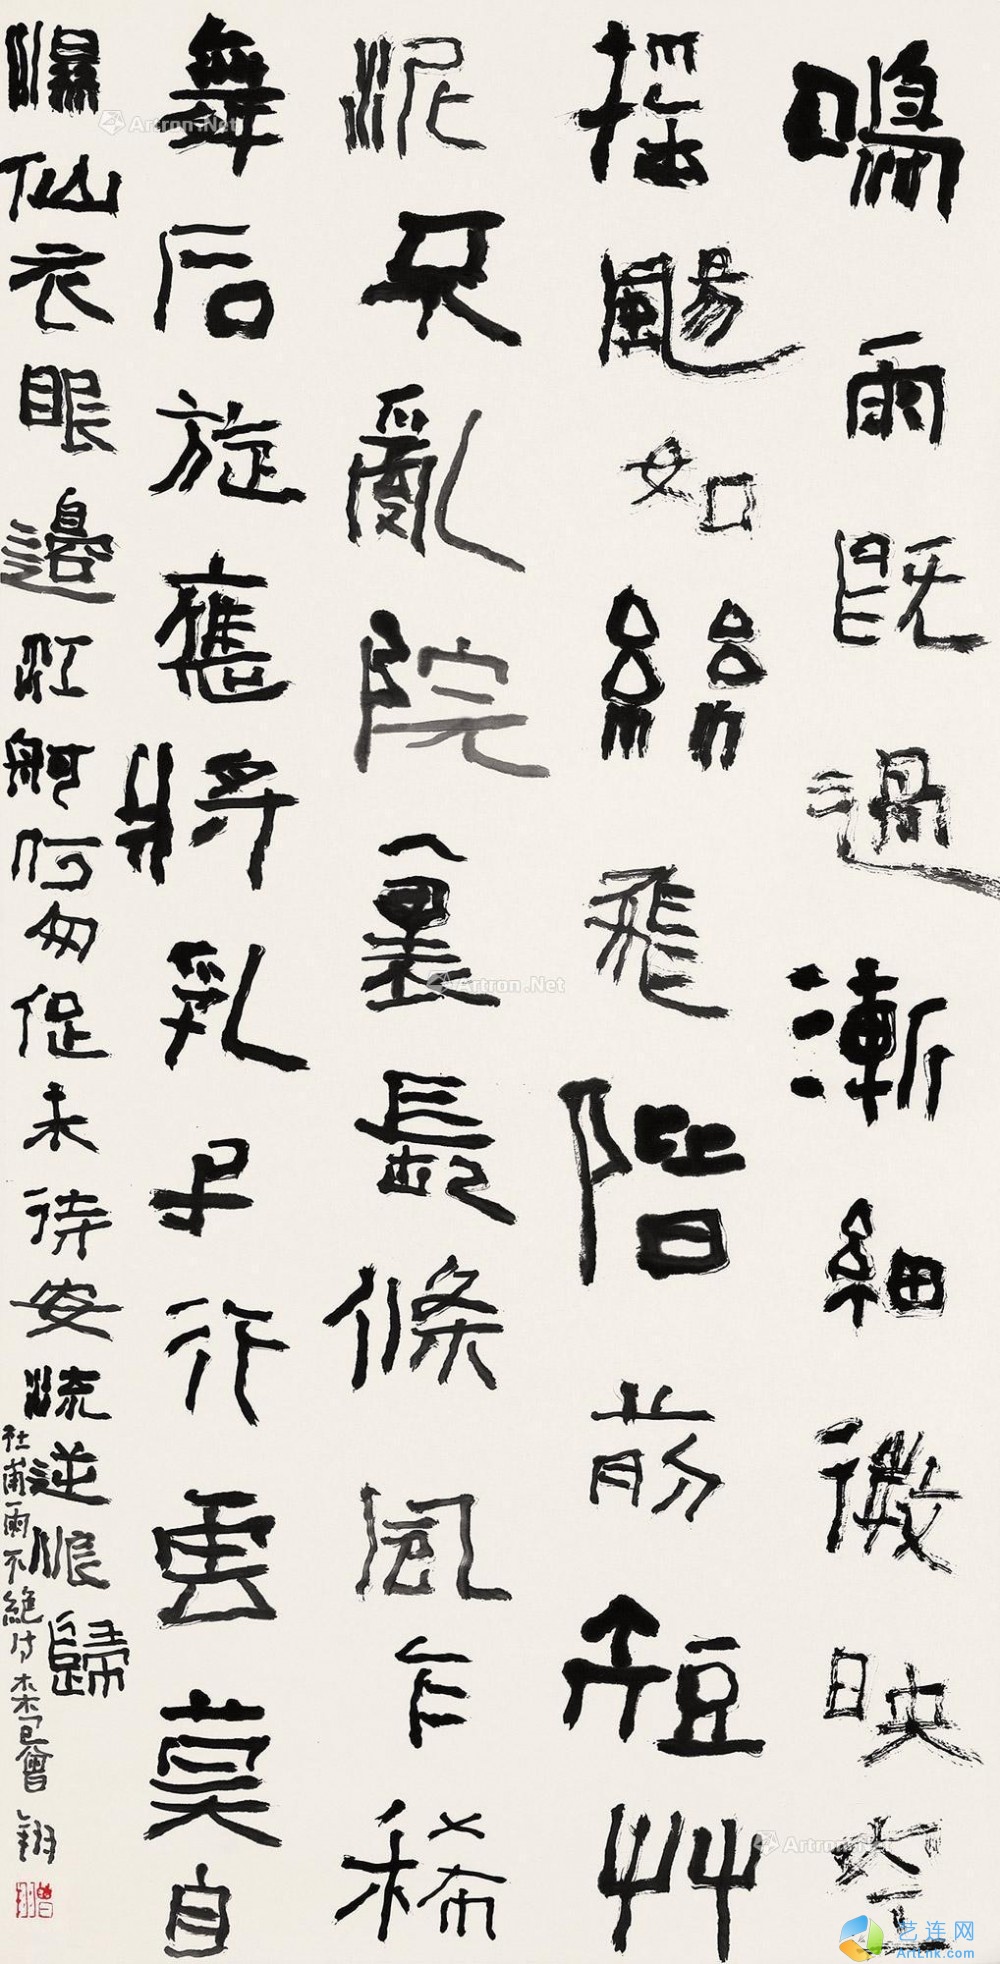 鳴雨既過漸細微映空
搖颺如絲飛階前短艸
泥不亂院裏長條風乍稀
舞石旋應將乳子行雲莫自
濕仙衣眼邊江舸何匆促未待安流逆浪歸
杜甫雨不絕詩 癸巳曾翔
曾翔
Artron.Net
Artron.Net
Artron.Net
艺连网
ArtLnk.com